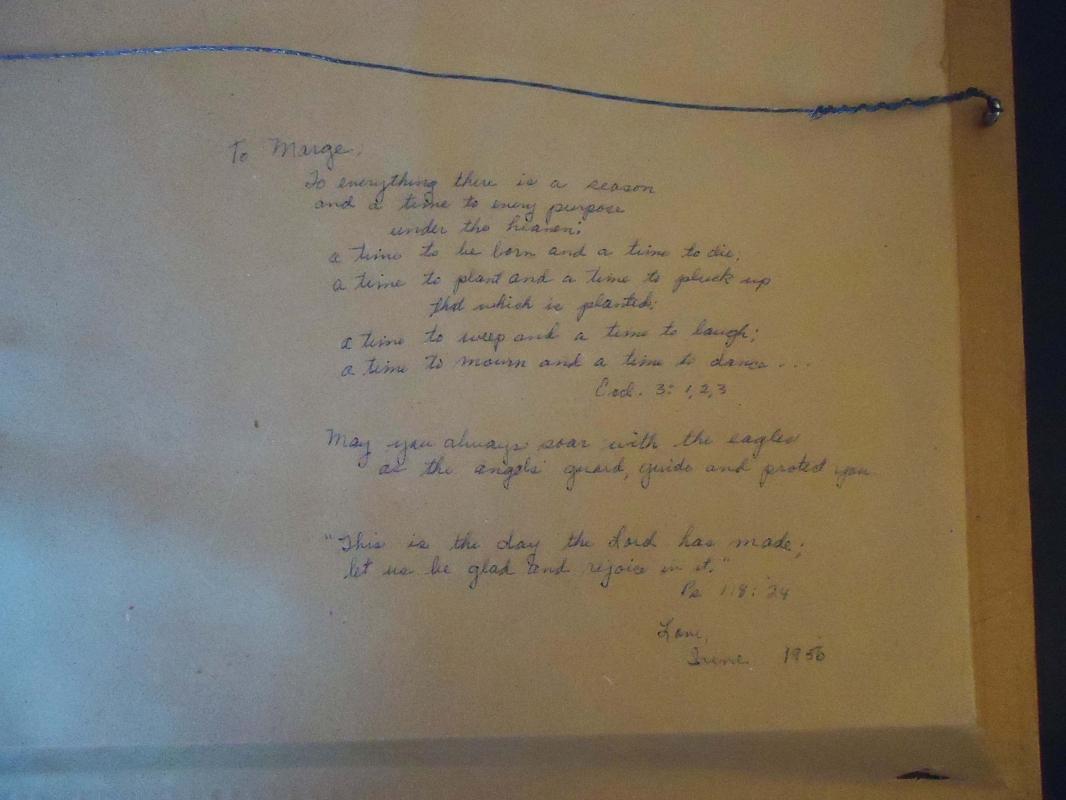 To Marge,
To everything there is a season
and a time to every purpose
under the heaven:
a time to be born and a time to die;
a time to plant and a time to pluck up
that which is planted;
a time to weep and a time to laugh;
a time to mourn and a time to dance ...
Eccl. 3: 1,2,3
May you always soar with the eagles
as the angels guard, guide and protect you
"This is the day the Lord has made;
let us be glad and rejoice in it."
Ps 118: 24
Love,
Irene 1956